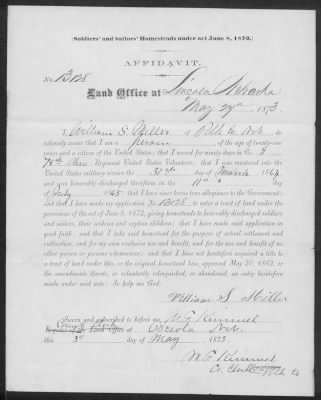 (Soldiers' and Sailors' Homesteads under act June 8, 1872.)
AFFIDAVIT.
No. 13128
Land Office at Lincoln Nebraska
May 29th 1873.
I, William S. Miller of Polk Co Neb. do
solemnly swear that I am a person of the age of twenty-one
years and a citizen of the United States; that I served for ninety days in Co.
78th Ohio Regiment United States Volunteers; that I was mustered into the
United States military service the 31st day of March 1864
and was honorably discharged therefrom on the 11th day of
July 1865; that I have since borne true allegiance to the Government;
and that I have made my application No. 13128 to enter a tract of land under the
provisions of the act of June 8, 1872, giving homesteads to honorably discharged soldiers
and sailors, their widows and orphan children; that I have made said application in
good faith; and that I take said homestead for the purpose of actual settlement and
cultivation, and for my own exclusive use and benefit, and for the use and benefit of no
other person or persons whomsoever; and that I have not heretofore acquired a title to
a tract of land under this, or the original homestead law, approved May 20, 1862, or
the amendments thereto, or voluntarily relinquished, or abandoned, an entry heretofore
made under said acts: So help me God.
William S. Miller
Sworn and subscribed to before me, W F Kimmel
Register of the Land Office at Osceola Neb.
this 3d day of May 1873
W F Kimmel
Co. Clerk Polk Co